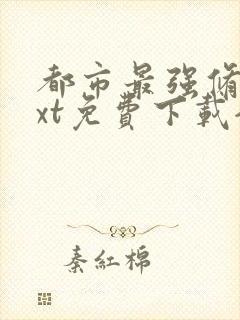 都市最强修
xt免費下載
秦紅棉